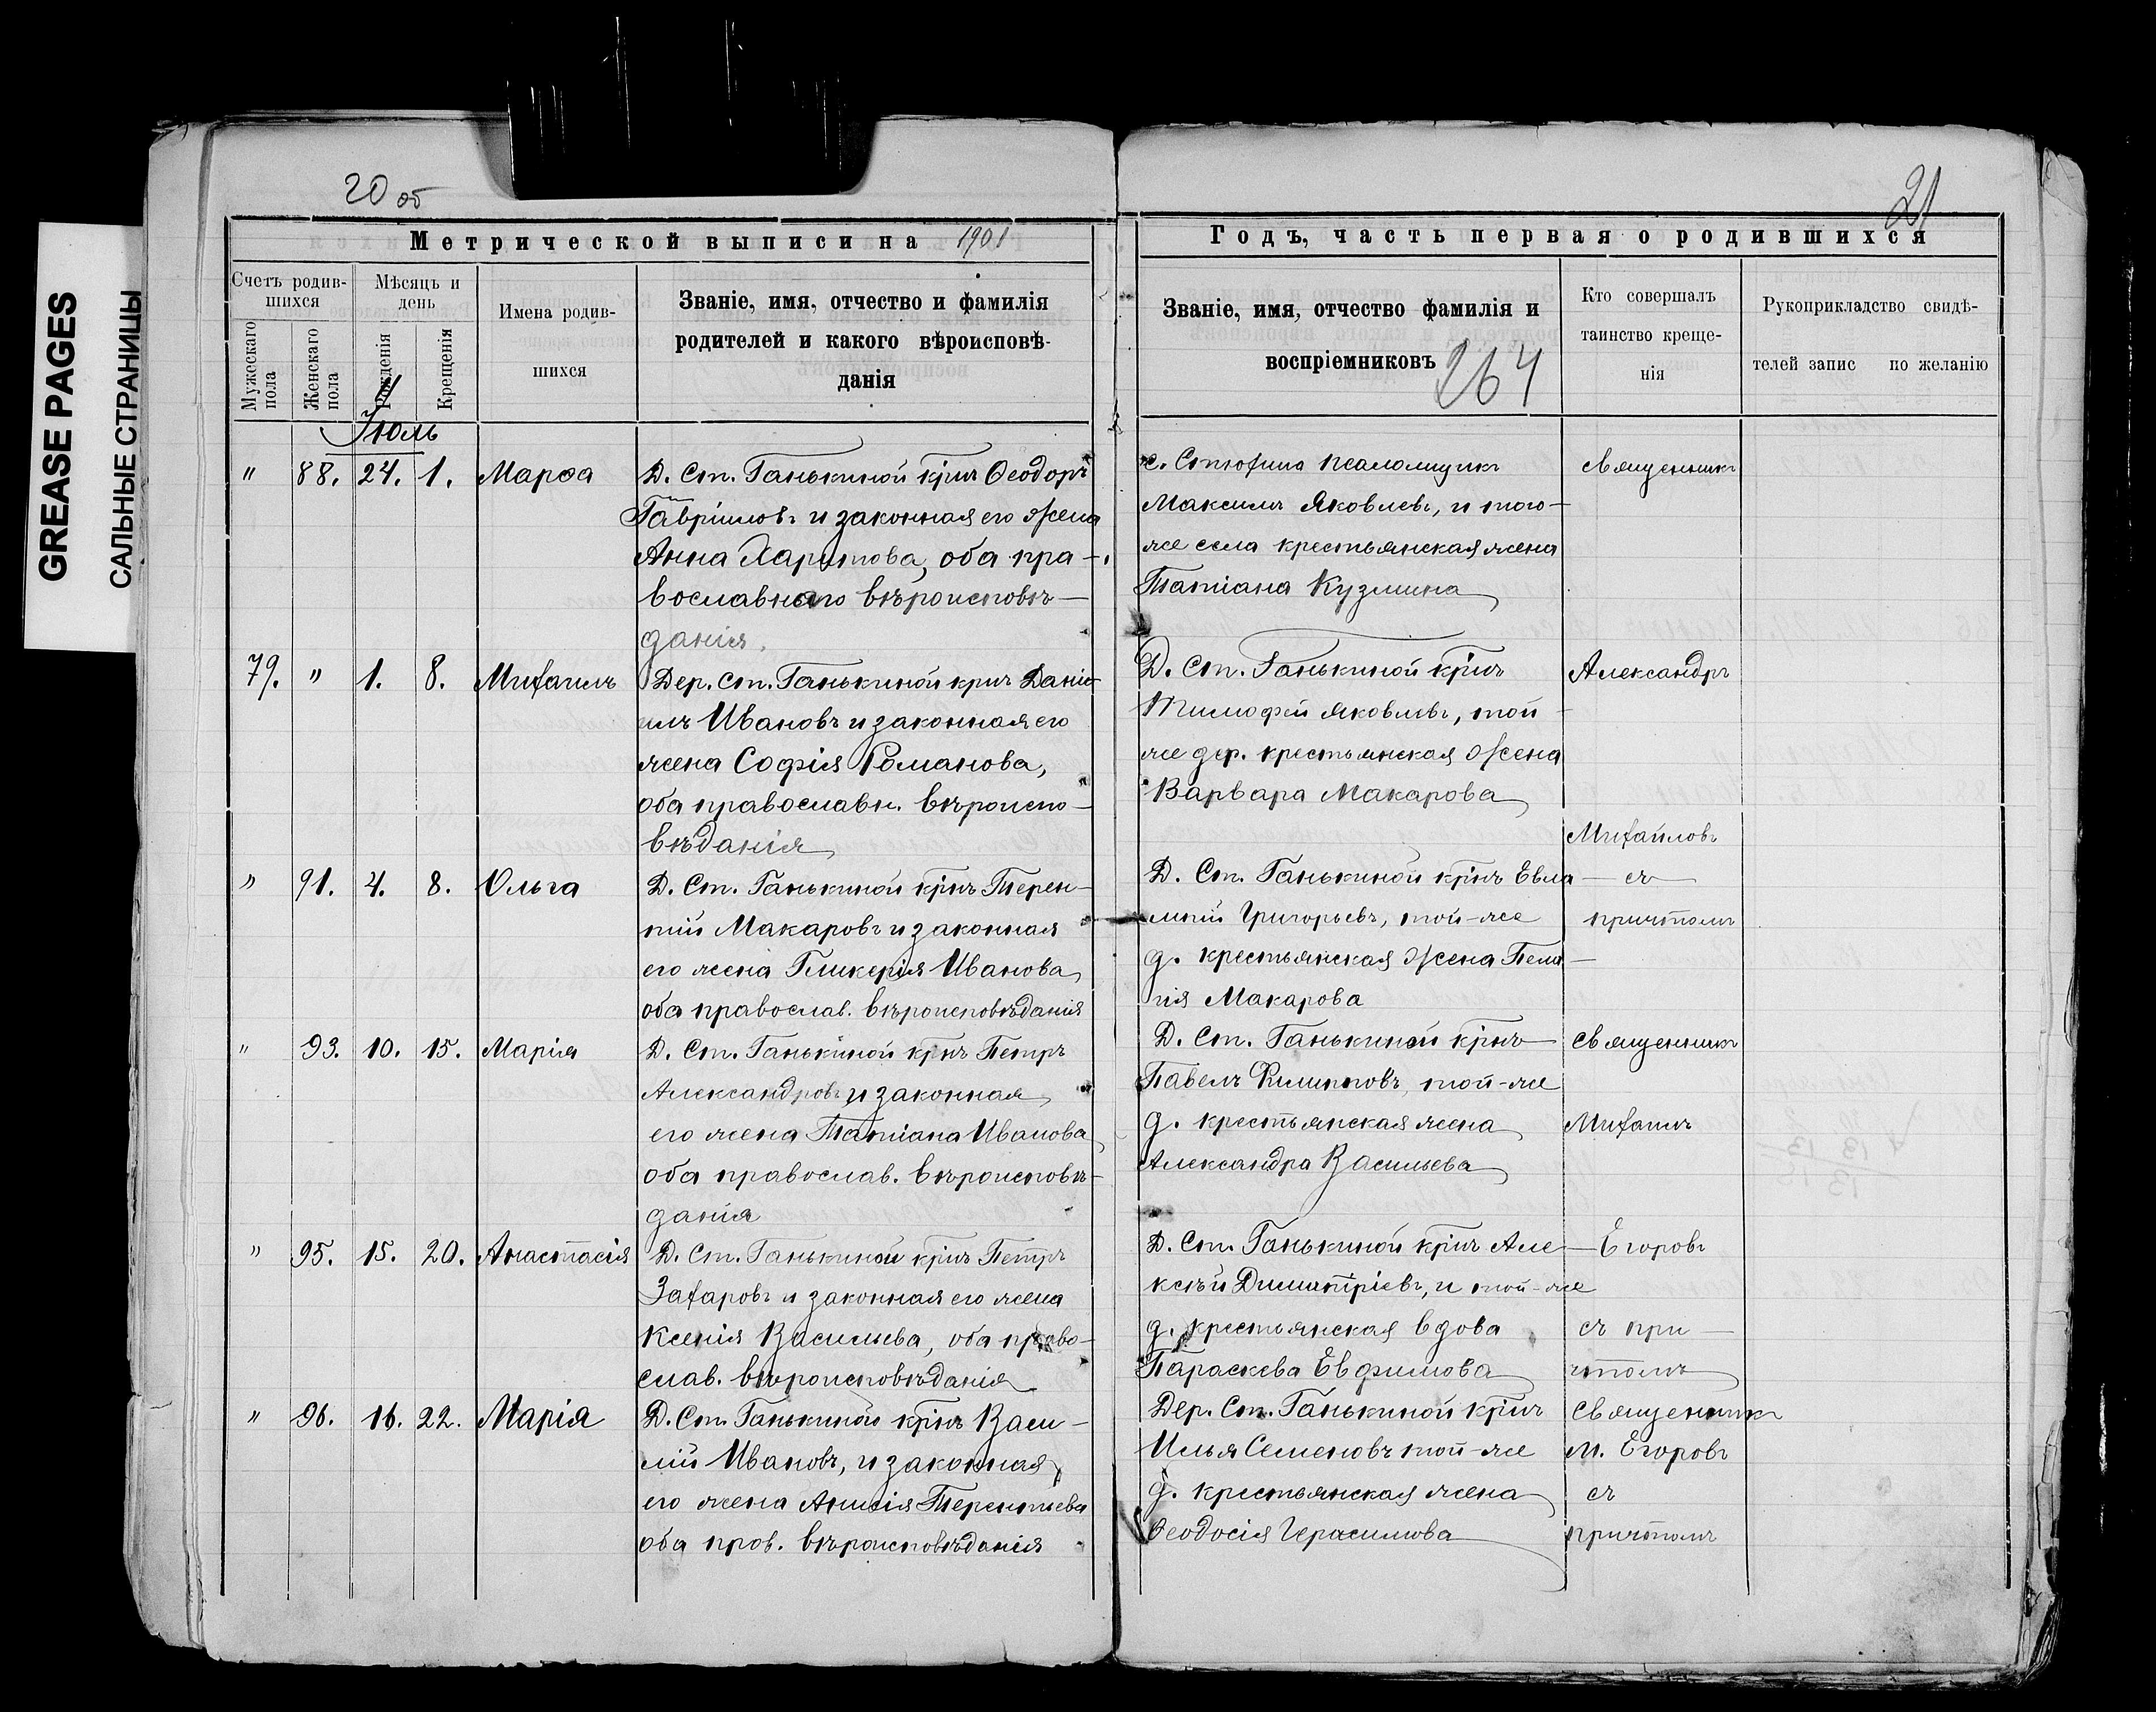 GREASE PAGES
САЛЬНЫЕ СТРАНИЦЫ
20 об
Метрической выписи на 1901
Счетъ родив-
шихся
Мужескаго
пола
Женскаго
пола
Мѣсяцъ и
день
Рожденія
Крещенія
Имена родив-
шихся
Званіе, имя, отчество и фамилія
родителей и какого вѣроисповѣ-
данія
Іюль
" 88. 24. 1. Марѳа
Д. Ст. Ганькиной крнъ Ѳеодоръ
Гавріиловъ и законная его жена
Анна Харитова, оба пра-
вославнаго вѣроисповѣ-
данія.
79. " 1. 8. Михаилъ
Дер. Ст. Ганькиной крнъ Даніи-
илъ Ивановъ и законная его
жена Софія Романова,
оба православн. вѣроиспо-
вѣданія
" 91. 4. 8. Ольга
Д. Ст. Ганькиной крнъ Терен-
тій Макаровъ и законная
его жена Гликерія Иванова,
оба православ. вѣроисповѣданія
" 93. 10. 15. Марія
Д. Ст. Ганькиной крнъ Петръ
Александровъ и законная
его жена Татіана Иванова
оба православ. вѣроисповѣ-
данія
" 95. 15. 20. Анастасія
Д. Ст. Ганькиной крнъ Петръ
Захаровъ и законная его жена
Ксенія Васильева, оба право-
слав. вѣроисповѣданія
" 96. 16. 22. Марія
Д. Ст. Ганькиной крнъ Васи-
лій Ивановъ, и законная
его жена Анисія Терентьева
оба прав. вѣроисповѣданія
21
Годъ, часть первая о родившихся
Званіе, имя, отчество фамилія и
воспріемниковъ
264
Кто совершалъ
таинство креще-
нія
Рукоприкладство свидѣ-
телей запис по желанію
с. Стюхина псаломщикъ
Максимъ Яковлевъ, и того-
же села крестьянская жена
Татіана Кузмина
Священникъ
Д. Ст. Ганькиной крнъ
Тимофей Яковлевъ, той-
же дер. крестьянская жена
Варвара Макарова
Александръ
Михайловъ
Д. Ст. Ганькиной крнъ Евла-
мпій Григорьевъ, той-же
д. крестьянская жена Пела-
гія Макарова
съ
причтомъ
Д. Ст. Ганькиной крнъ
Павелъ Филипповъ, той-же
д. крестьянская жена
Александра Васильева
Священникъ
Михаилъ
Д. Ст. Ганькиной крнъ Але-
ксѣй Димитріевъ, и той-же
д. крестьянская вдова
Параскева Евфимова
Егоровъ
съ при-
чтомъ
Дер. Ст. Ганькиной крнъ
Илья Семеновъ той-же
д. крестьянская жена
Ѳеодосія Герасимова
Священникъ
М. Егоровъ
съ
причтомъ